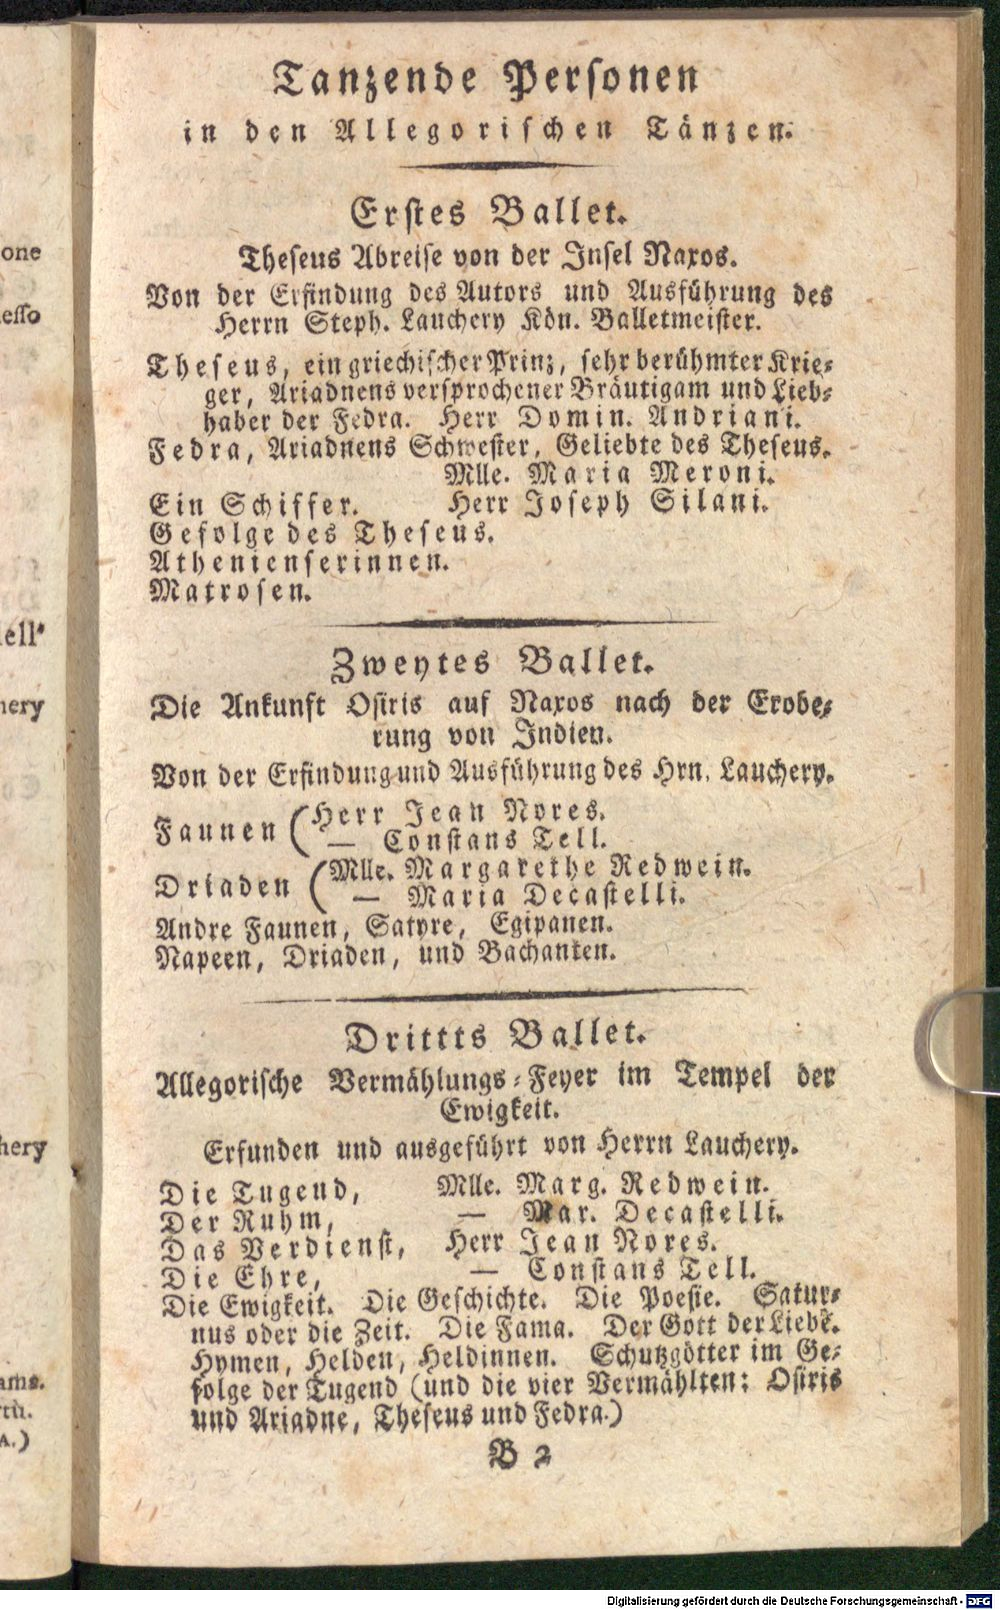 Tanzende Perſonen
in den Allegoriſchen Tänzen.
Erſtes Ballet.
Theſeus Abreiſe von der Inſel Naxos.
Von der Erfindung des Autors und Ausführung des
Herrn Steph. Lauchery Kön. Balletmeiſter.
Theſeus, ein griechiſcher Prinz, ſehr berühmter Krie-
ger, Ariadnens verſprochener Bräutigam und Lieb-
haber der Fedra. Herr Domin. Andriani.
Fedra, Ariadnens Schweſter, Geliebte des Theſeus.
Mlle. Maria Meroni.
Ein Schiffer. Herr Joſeph Silani.
Gefolge des Theſeus.
Athenienſerinnen.
Matroſen.
Zweytes Ballet.
Die Ankunft Oſiris auf Naxos nach der Erobe-
rung von Indien.
Von der Erfindung und Ausführung des Hrn. Lauchery.
Faunen (Herr Jean Nores.
— Conſtans Tell.
Driaden (Mlle. Margarethe Redwein.
— Maria Decaſtelli.
Andre Faunen, Satyre, Egipanen.
Napeen, Driaden, und Bachanten.
Drittts Ballet.
Allegoriſche Vermählungs-Feyer im Tempel der
Ewigkeit.
Erfunden und ausgeführt von Herrn Lauchery.
Die Tugend, Mlle. Marg. Redwein.
Der Ruhm, — Mar. Decaſtelli.
Das Verdienſt, Herr Jean Nores.
Die Ehre, — Conſtans Tell.
Die Ewigkeit. Die Geſchichte. Die Poeſie. Satur-
nus oder die Zeit. Die Fama. Der Gott der Liebe.
Hymen, Helden, Heldinnen. Schutzgötter im Ge-
folge der Tugend (und die vier Vermählten: Oſiris
und Ariadne, Theſeus und Fedra.)
B 2
one
eſſo
ell'
nery
hery
ama.
rtù.
A.)
Digitalisierung gefördert durch die Deutsche Forschungsgemeinschaft - DFG